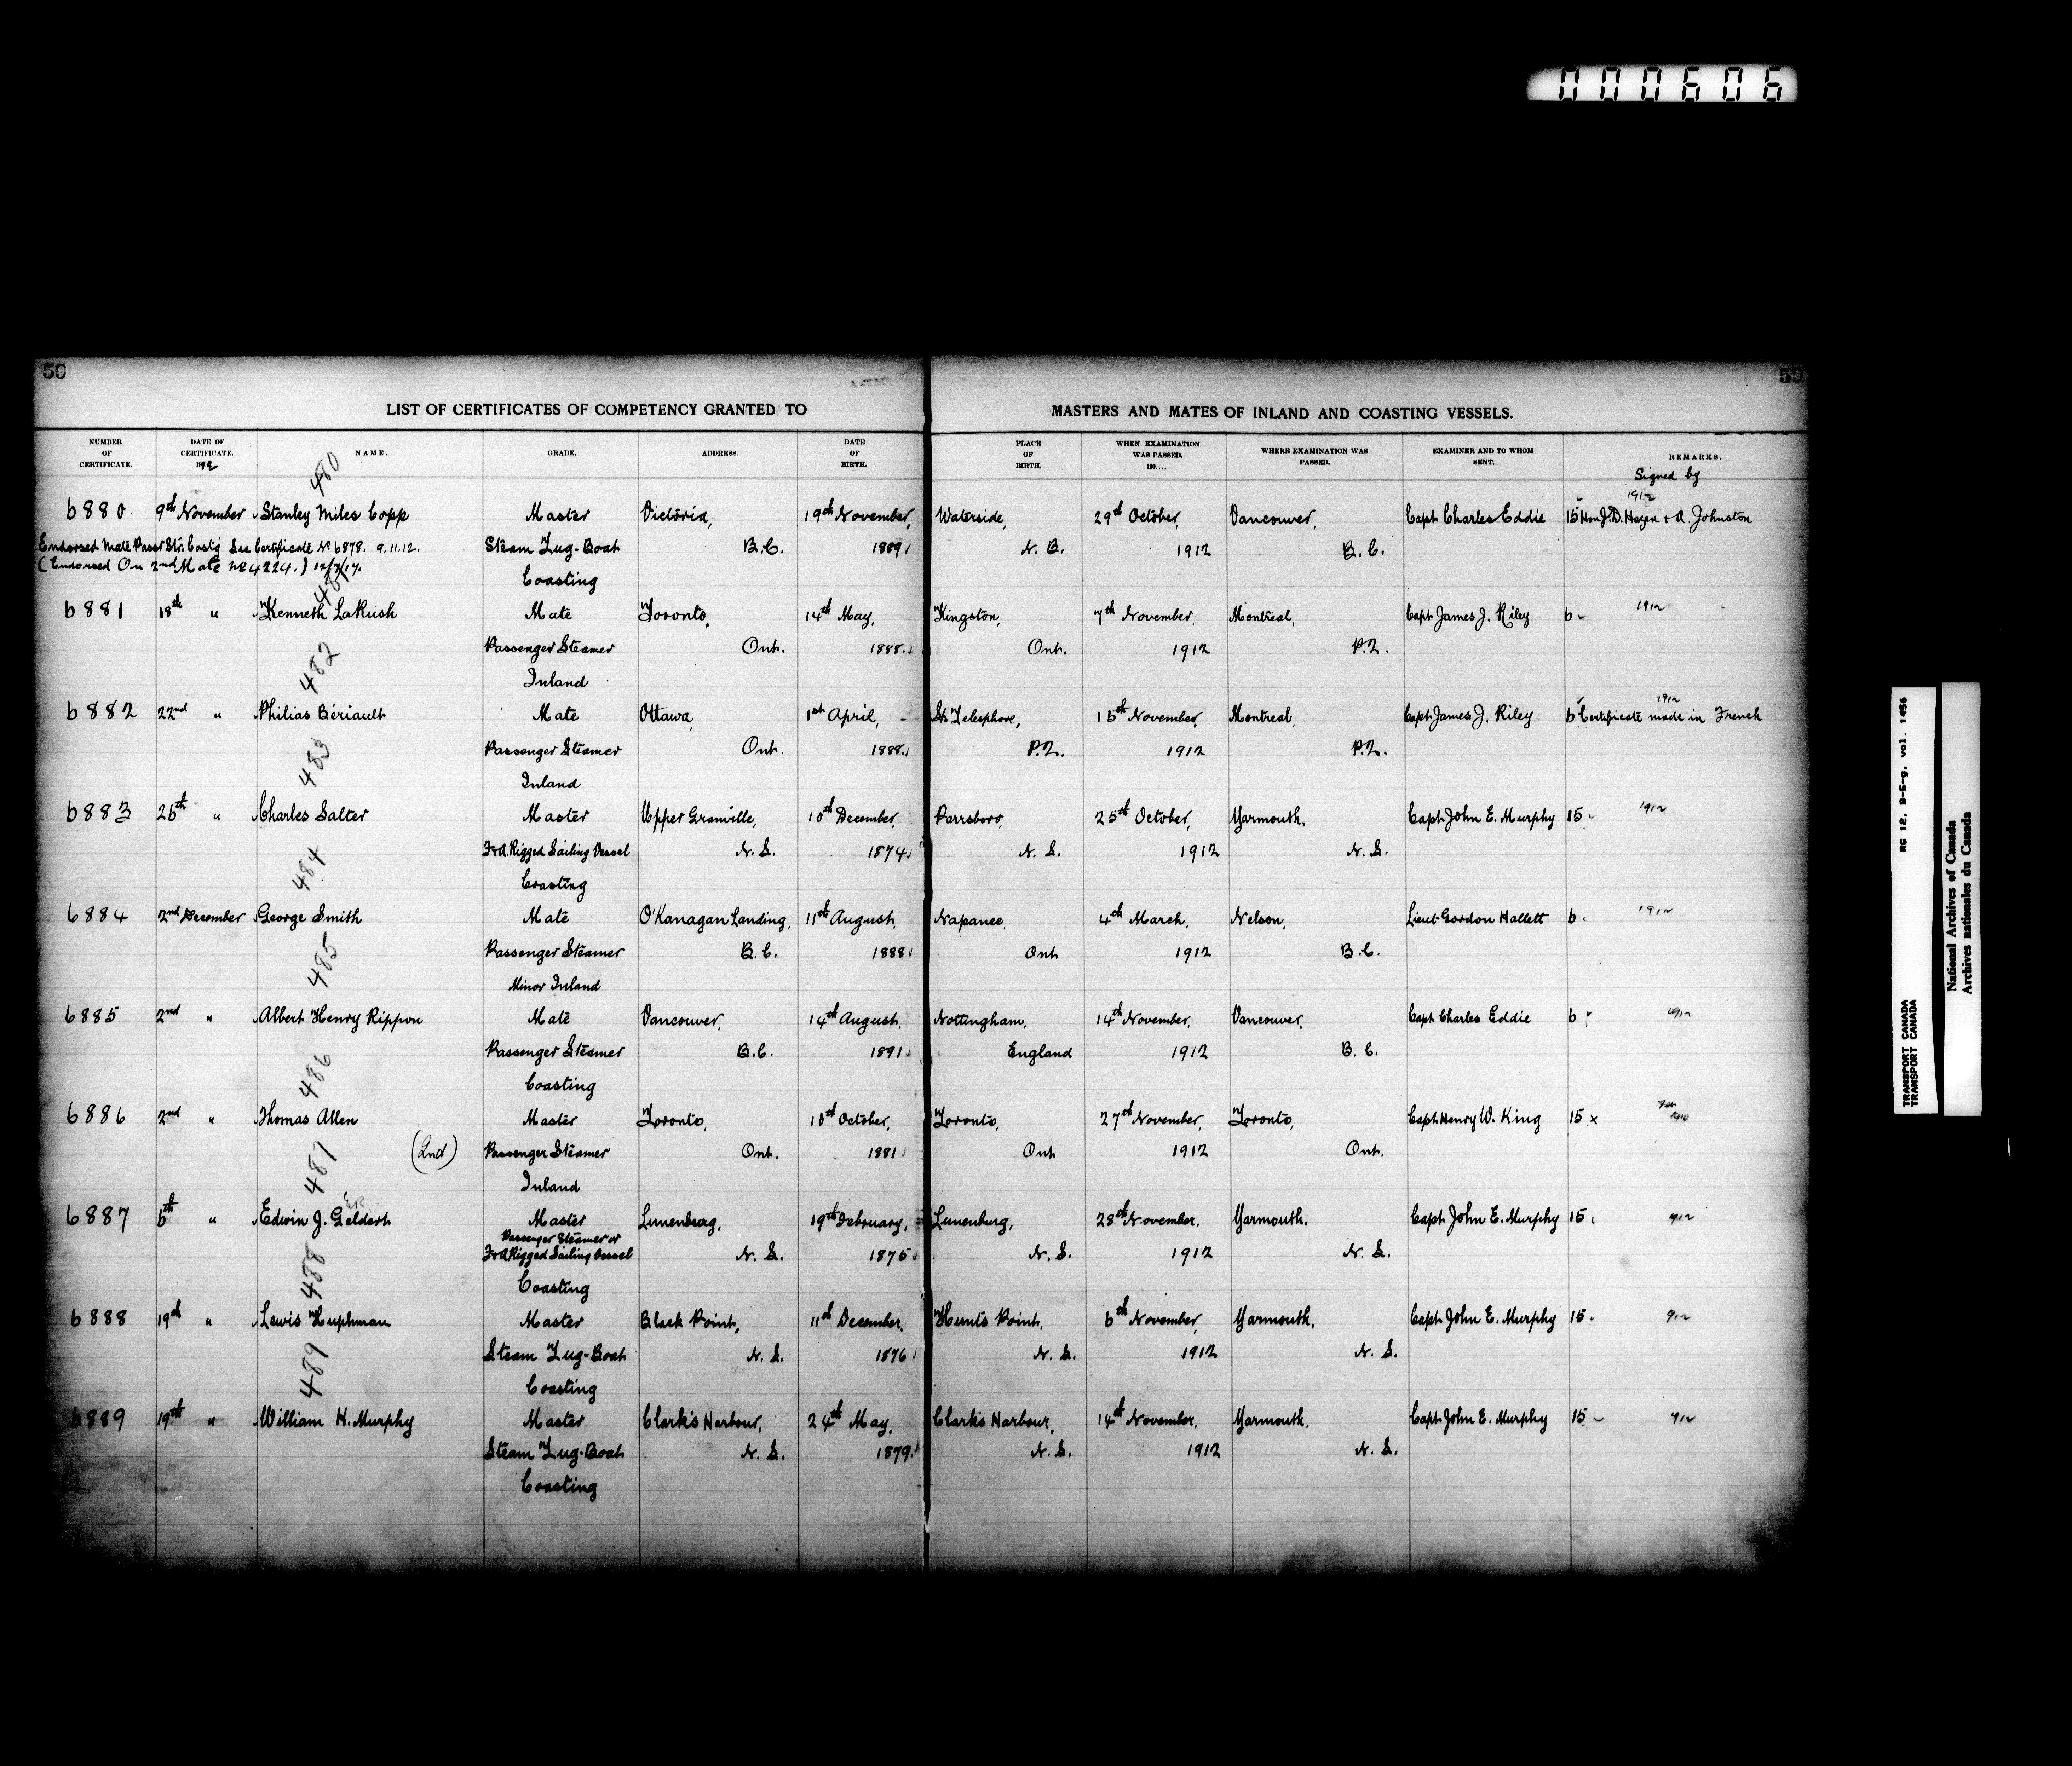 000606
50
50
LIST OF CERTIFICATES OF COMPETENCY GRANTED TO MASTERS AND MATES OF INLAND AND COASTING VESSELS.
NUMBER OF CERTIFICATE. DATE OF CERTIFICATE. 1912 NAME. GRADE. ADDRESS. DATE OF BIRTH. PLACE OF BIRTH. WHEN EXAMINATION WAS PASSED. 190.... WHERE EXAMINATION WAS PASSED. EXAMINER AND TO WHOM SENT. REMARKS.
Signed by
480
1912
6880 9th November Stanley Miles Copp Master Victoria, 19th November, Waterside, 29th October, Vancouver, Capt Charles Eddie 15 Hon J.D. Hazen + A. Johnston
Endorsed Mate Passr Str. Coastg See Certificate No 6878. 9.11.12. Steam Tug-Boat B.C. 1889 N.B. 1912 B.C.
(Endorsed On 2nd Mate No 4224.) 12/7/17. Coasting
6881 18th " Kenneth LaRush Mate Toronto, 14th May, Kingston, 7th November, Montreal, Capt James J. Riley 6 1912
Passenger Steamer Ont. 1888. Ont. 1912 P.Q.
482 Inland
6882 22nd " Philias Bériault Mate Ottawa, 1st April, St. Telesphore, 15th November, Montreal, Capt James J. Riley 6 Certificate made in French 1912
Passenger Steamer Ont. 1888. P.Q. 1912 P.Q.
483 Inland
6883 26th " Charles Salter Master Upper Granville, 10th December, Parrsboro, 25th October, Yarmouth, Capt John E. Murphy 15 1912
F&A. Rigged Sailing Vessel N.S. 1874 N.S. 1912 N.S.
484 Coasting
6884 2nd December George Smith Mate O'Kanagan Landing, 11th August, Napanee, 4th March, Nelson, Lieut Gordon Hallett 6 1912
Passenger Steamer B.C. 1888 Ont 1912 B.C.
485 Minor Inland
6885 2nd " Albert Henry Rippon Mate Vancouver, 14th August, Nottingham, 14th November, Vancouver, Capt Charles Eddie 6 1912
Passenger Steamer B.C. 1891 England 1912 B.C.
486 Coasting
6886 2nd " Thomas Allen Master Toronto, 10th October, Toronto, 27th November, Toronto, Capt Henry W. King 15 x
(2nd) Passenger Steamer Ont. 1881 Ont 1912 Ont.
487 Inland
6887 6th " Edwin J. Geldert Master Lunenburg, 19th February, Lunenburg, 28th November, Yarmouth, Capt John E. Murphy 15 912
Passenger Steamer or
F&A Rigged Sailing Vessel N.S. 1875 N.S. 1912 N.S.
488 Coasting
6888 19th " Lewis Huphman Master Black Point, 11th December, Hunts Point, 6th November, Yarmouth, Capt John E. Murphy 15 912
Steam Tug-Boat N.S. 1876 N.S. 1912 N.S.
489 Coasting
6889 19th " William H. Murphy Master Clark's Harbour, 24th May, Clark's Harbour, 14th November, Yarmouth, Capt John E. Murphy 15 912
Steam Tug-Boat N.S. 1879 N.S. 1912 N.S.
Coasting
RG 12, B-5-g, vol. 1456
TRANSPORT CANADA
TRANSPORT CANADA
National Archives of Canada
Archives nationales du Canada